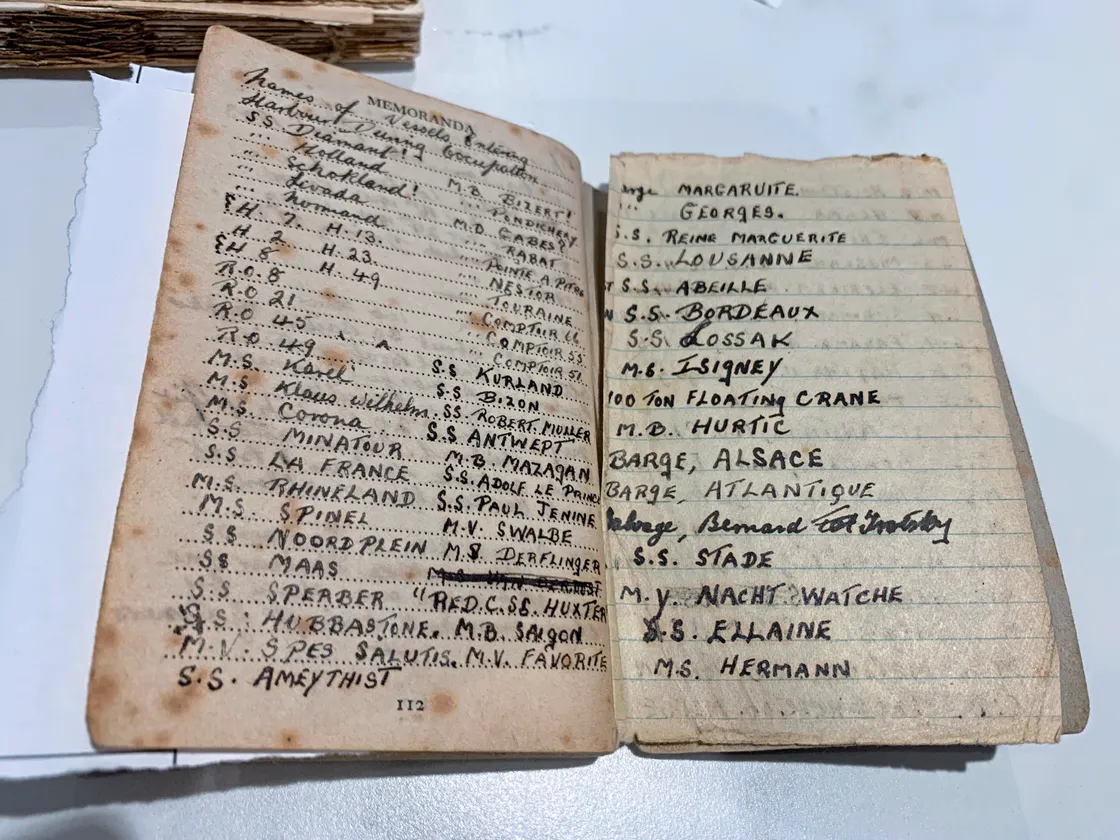 MEMORANDA
Names of Vessels Entering
Harbour During Occupation
SS Diamant!
" Holland M.B. BIZERT!
" Schokland! " PONDICHERY
" Levada M.D. GABES?
" Normand " RABAT
H. 7. H.13. " POINTE A. PITRE
H. 2 H. 23. " NESTOR
H 8 H. 49 " TOURAINE
R.O. 8 " COMPTOIR 66
R.O. 21 " COMPTOIR 55
R.O. 45 COMPTOIR 51
R.O. 49 S.S KURLAND
M.S. Karel S.S BIZON
M.S Klaus Wilhelm SS ROBERT. MULLER
M.S. Corona S.S ANTWEPT
S.S MINATOUR M.B. MAZAGAN
S.S. LA FRANCE S.S. ADOLF LE PRINCE
M.S. RHINELAND S.S. PAUL JENINE
M.S SPINEL M.V. SWALBE
S.S NOORDPLEIN M.S. DERFLINGER
SS MAAS
S.S. SPERBER "RED.C.SS. HUXTER
S.S. HUBBASTONE. M.B. SAIGON
M.V. SPES SALUTIS. M.V. FAVORITE
S.S. AMEYTHIST
112
MARGARUITE.
" GEORGES.
S.S. REINE MARGUERITE
S.S. LOUSANNE
S.S. ABEILLE
S.S. BORDEAUX
S.S. LOSSAK
M.S. ISIGNEY
100 TON FLOATING CRANE
M.B. HURTIC
BARGE, ALSACE
BARGE, ATLANTIQUE
Salvage, Bernard
S.S. STADE
M.Y. NACHT WATCHE
S.S. ELLAINE
M.S. HERMANN